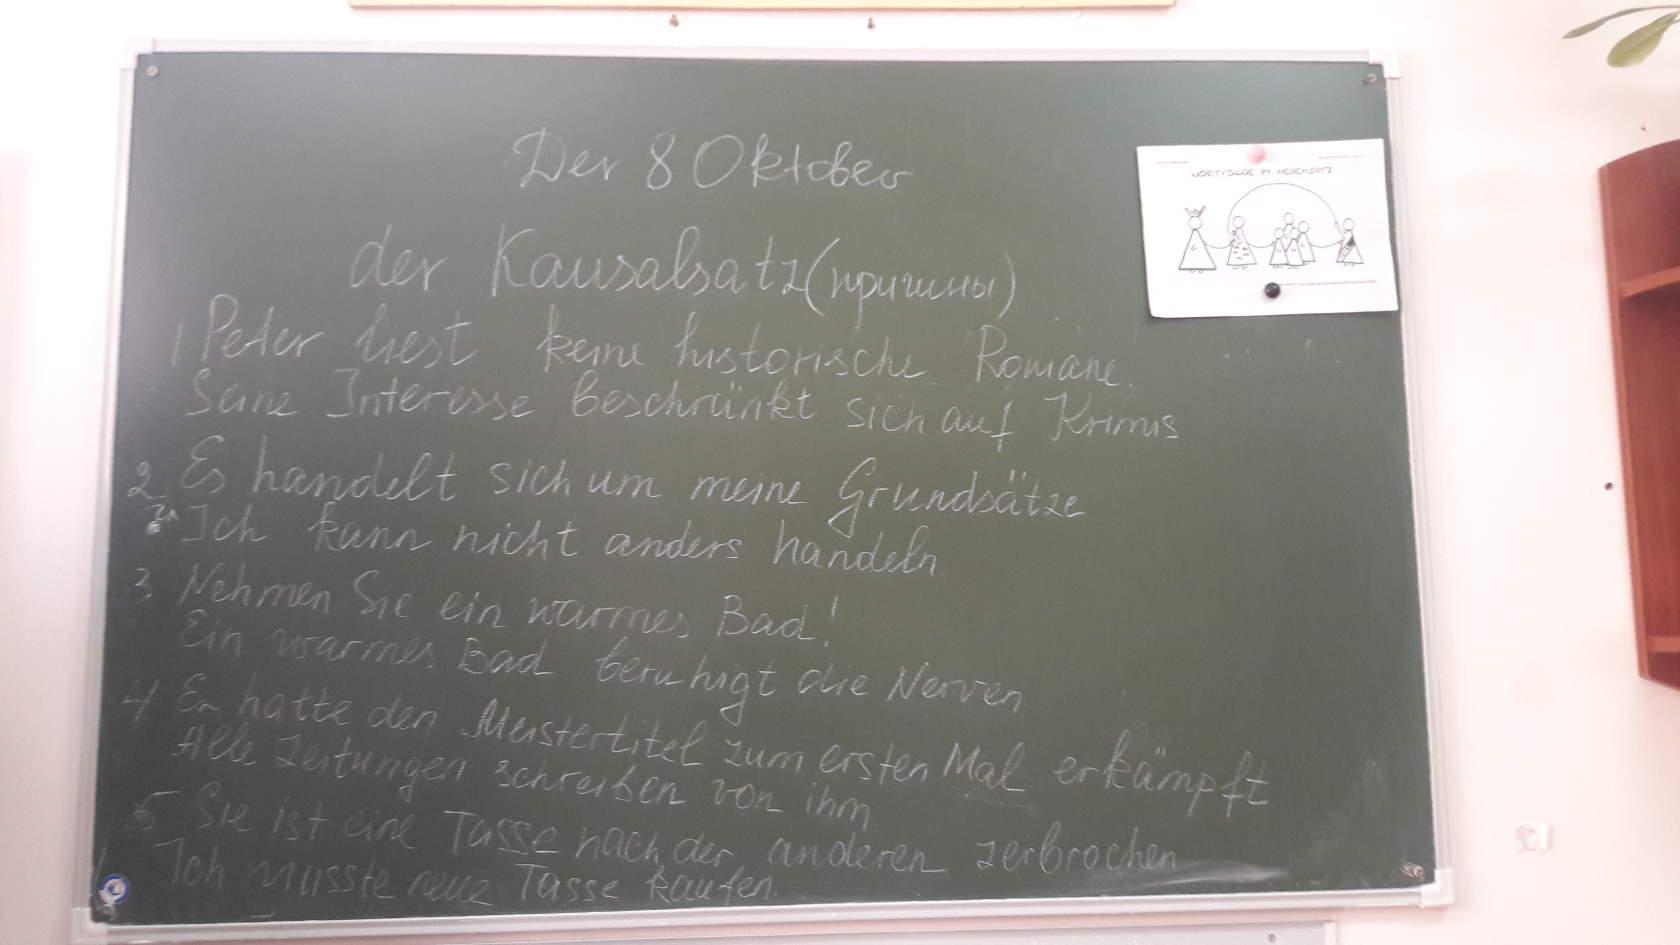 Der 8 Oktober
WORTFOLGE IM NEBENSATZ
der Kausalsatz (причины)
1 Peter liest keine historische Romane.
Seine Interesse beschränkt sich auf Krimis
2 Es handelt sich um meine Grundsätze
Ich kann nicht anders handeln.
3 Nehmen Sie ein warmes Bad!
Ein warmes Bad beruhigt die Nerven
4 Er hatte den Meistertitel zum ersten Mal erkämpft
Alle Zeitungen schreiben von ihm
5 Sie ist eine Tasse nach der anderen zerbrochen
Ich musste neue Tasse kaufen.